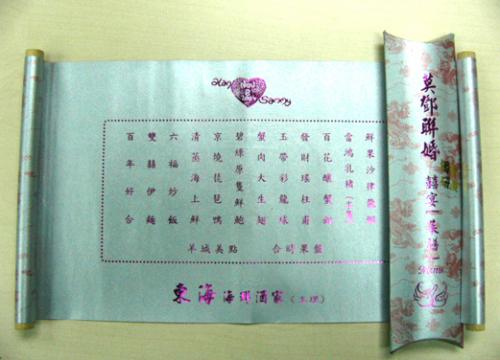 囍
Sanny
鮮果沙律龍蝦
當鴻乳豬
百花釀蟹鉗
發財瑤柱甫
玉帶彩龍球
蟹肉大生翅
碧綠原隻鮮鮑
京燒琵琶鴨
清蒸海上鮮
六福炒飯
雙囍伊麵
百年好合
羊城美點 合時果盤
東海海鮮酒家
莫鄧聯婚
囍宴
Menu